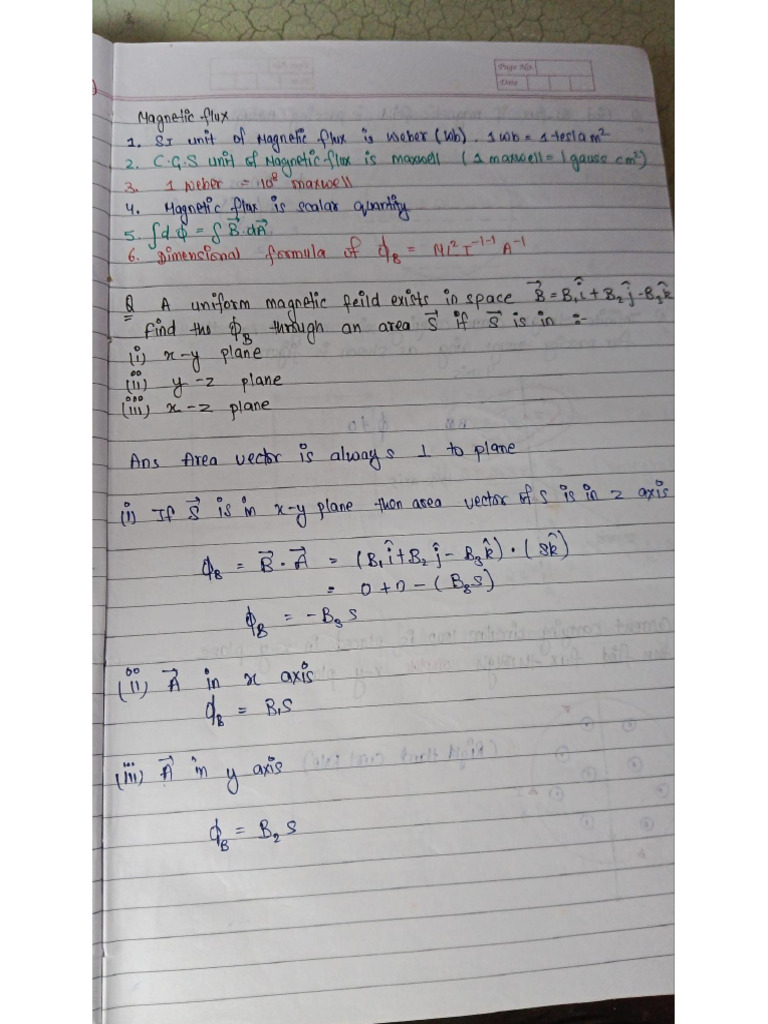 Page No.
Date
Magnetic flux
1. SI unit of Magnetic flux is Weber (Wb). 1wb = 1 tesla m²
2. C.G.S unit of Magnetic flux is maxwell (1 maxwell = 1 gauss cm²)
3. 1 Weber = 10⁸ maxwell
4. Magnetic flux is scalar quantity
5. ∫dϕ = ∫B⃗.dA⃗
6. Dimensional formula of ϕ_B = ML² I⁻¹⁻¹ A⁻¹
Q A uniform magnetic feild exists in space B⃗ = B₁î + B₂ĵ - B₃k̂
Find the ϕ_B through an area S⃗ if S⃗ is in :-
(i) x-y plane
(ii) y-z plane
(iii) x-z plane
Ans Area vector is always ⊥ to plane
(i) If S⃗ is in x-y plane then area vector of s is in z axis
ϕ_B = B⃗ . A⃗ = (B₁î + B₂ĵ - B₃k̂) • (sk̂)
= 0 + 0 - (B₃s)
ϕ_B = -B₃s
(ii) A⃗ in x axis
ϕ_B = B₁s
(iii) A⃗ in y axis
ϕ_B = B₂s